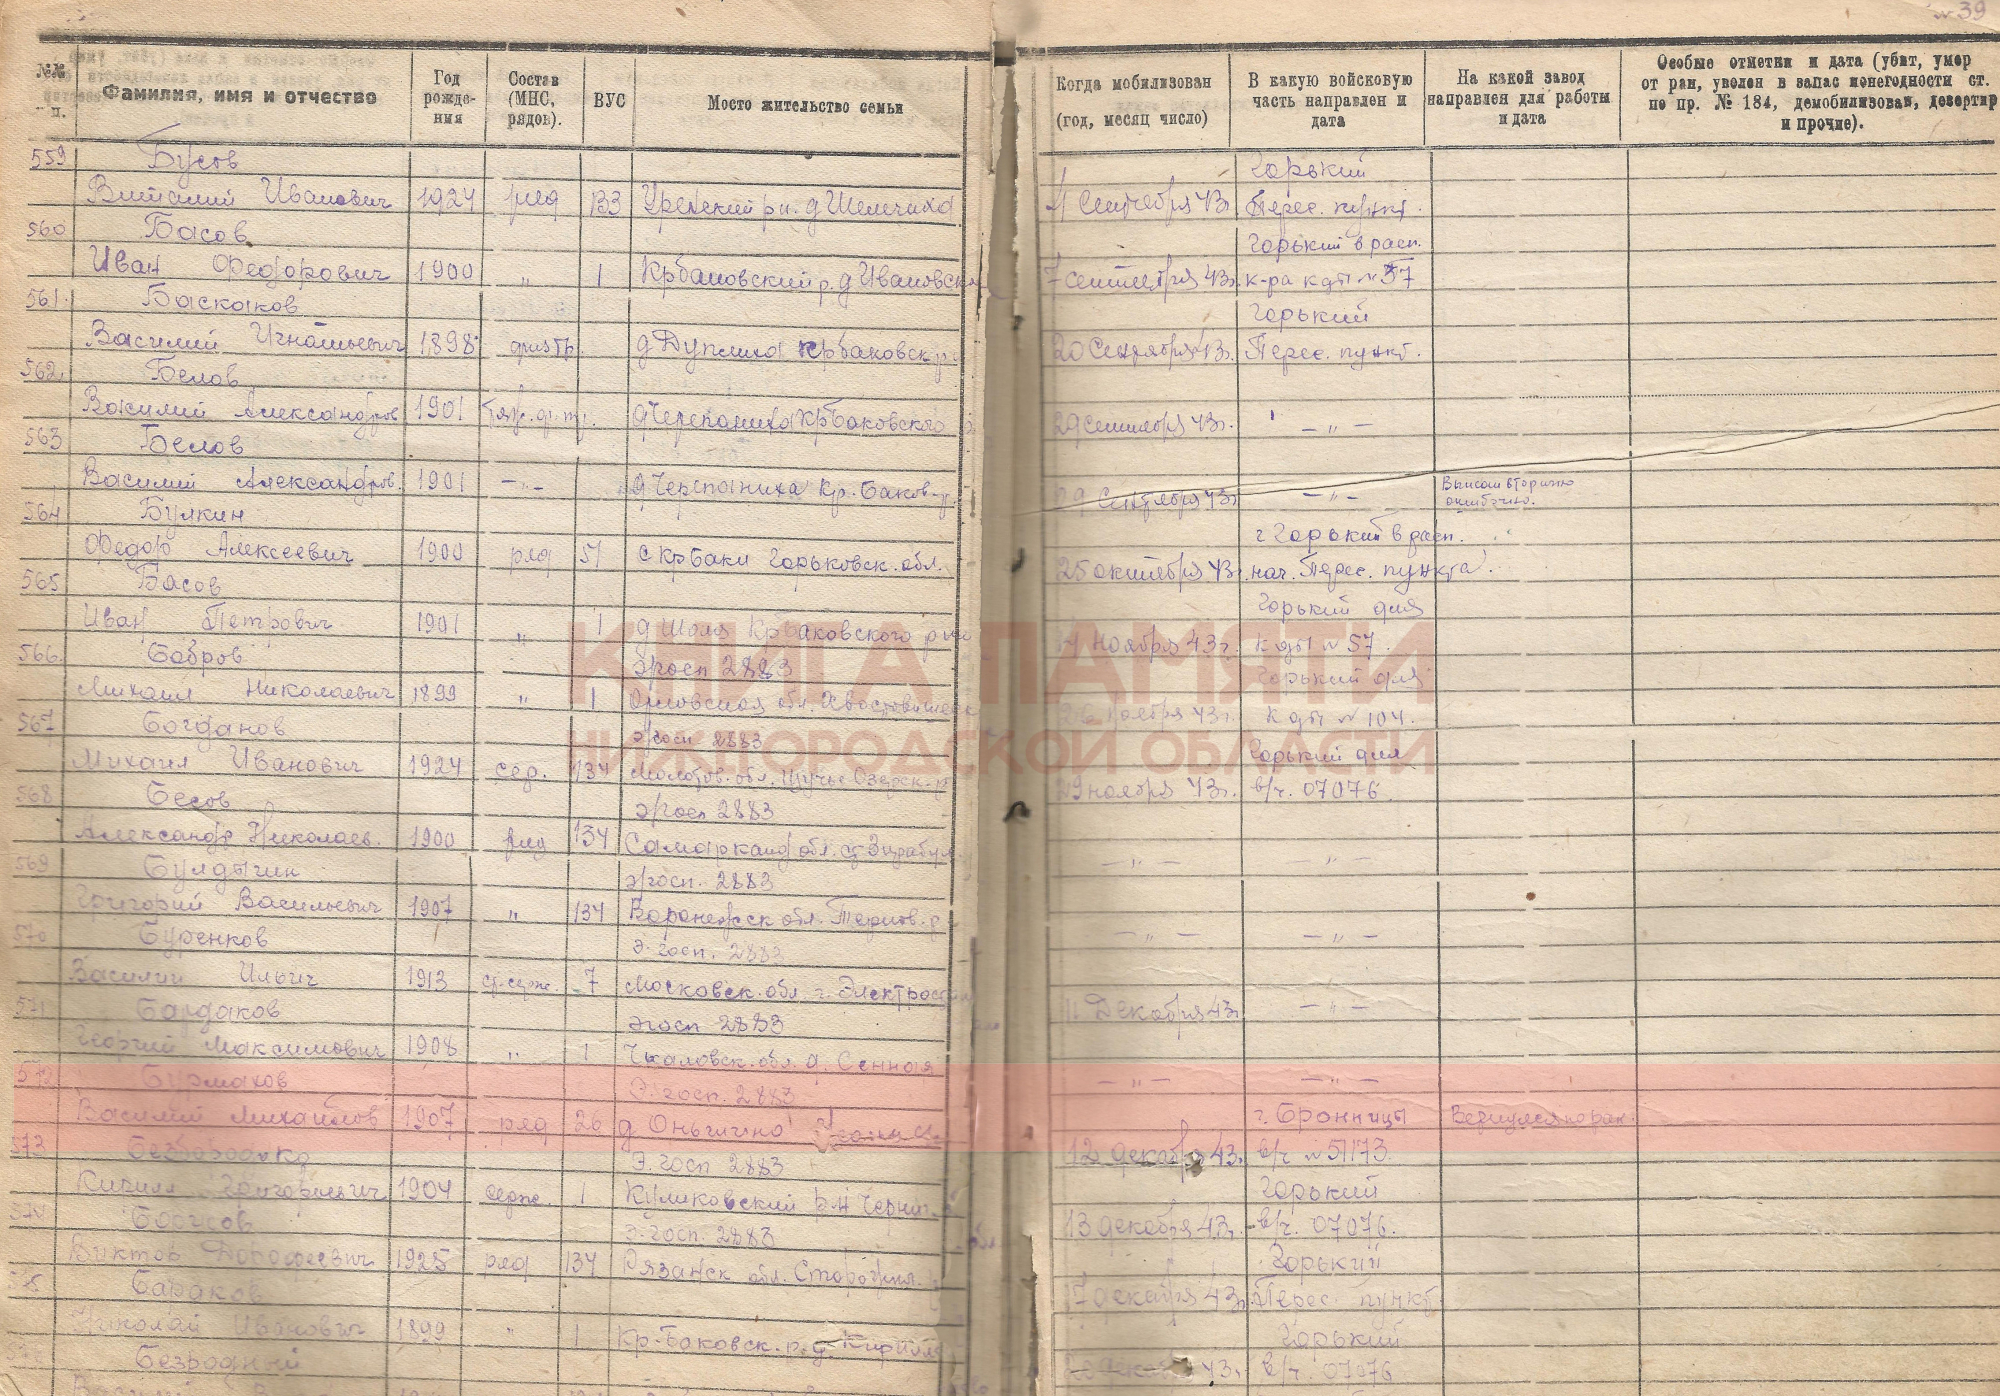 № 39
№№ п.
Фамилия, имя и отчество
Год рожде- ния
Состав (МНС, рядов).
ВУС
Мосто жительство семьи
Когда мобилизован (год, месяц число)
В какую войсковую часть направлен и дата
На какой завод направлен для работы и дата
Особые отметки и дата (убит, умер от ран, уволен в запас ионегодности ст. по пр. № 184, демобилизован, дезертир и прочие).
559 Бусов Горький
Виталий Иванович 1924 ряд 133 Уренский рн. д 4 Сентября 43г. Перес. пункт.
560 Басов Горький в расп.
Иван Федорович 1900 „ 1 Крбаковский р. д Ивановск 7 сентября 43г. к-ра кды № 37
561. Баскаков Горький
Василий Игнатьевич 1898 д Крбаковск. р. 20 Сентября 43г. Перес. пункт.
562. Белов
Василий Александров 1901 д Черепаниха КрБаковского 29 сентября 43г. — „ —
563 Белов
Василий Александров. 1901 — „ — д Черепаниха Кр-Баков-р. 29 Сентября 43г. — „ — Вписан вторично ошибочно.
564 Булкин г Горький в расп.
Федор Алексеевич 1900 ряд 51 с КрБаки Горьковск. обл. 25 октября 43г. нач. Перес. пункта
565 Басов Горький для
Иван Петрович 1901 „ 1 д Шоля КрБаковского р 14 ноября 43г. кды № 57.
566. Бобров э/госп 2883 Горький для
Михаил Николаевич 1899 „ 1 Орловская обл. 26 ноября 43г. кды № 104.
567 Богданов э/госп 2883 Горький для
Михаил Иванович 1924 сер. 134 Молотов. обл. Щучье Озерск-р 29 ноября 43г. в/ч. 07076
568 Бесов э/госп 2883
Александр Николаев. 1900 ряд 134 Самарканд обл. ст — „ — — „ —
569 Булдыгин э/госп. 2883
Григорий Васильевич 1907 „ 134 Воронежск обл. Тернов. р — „ — — „ —
570 Буренков Э. госп. 2883
Василий Ильич 1913 ст. серж. 7 Московск. обл г. Электростал 11 Декабря 43г — „ —
571 Бардаков Эгосп 2883
Георгий Максимович 1908 „ 1 Чкаловск. обл. д. Сенная — „ — — „ —
572 Бурмахов Э. госп. 2883 г. Бронницы
Василий Михайлов 1907 ряд 26 д 12 декабря 43г. в/ч № 51173 Вернулся
573 Безбородько Э. госп 2883 Горький
Кирилл Григорьевич 1904 серж. 1 Куликовский р-н Черниг. 13 декабря 43г. в/ч. 07076.
574 Борисов Э. госп. 2883 Горький
Виктор Дорофеевич 1925 ряд 134 Рязанск обл. 17 декабря 43г. Перес. пункт
Бараков Горький
Николай Иванович 1899 „ 1 Кр-Баковск. р. д. декабря 43г. в/ч. 07076
Безродный
КНИГА ПАМЯТИ
НИЖЕГОРОДСКОЙ ОБЛАСТИ